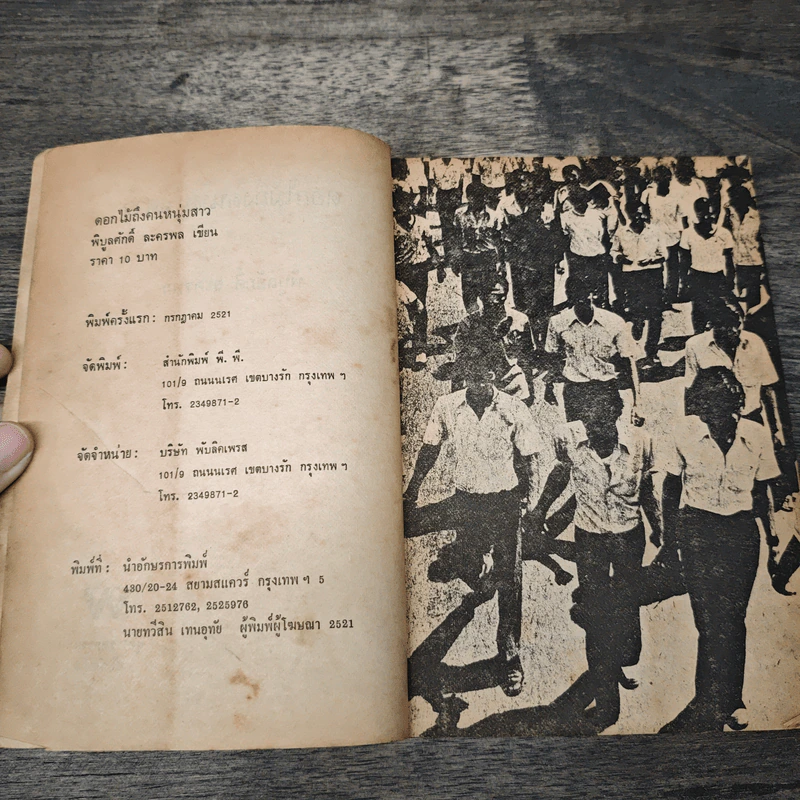 ดอกไม้ถึงคนหนุ่มสาว
พิบูลศักดิ์ ละครพล เขียน
ราคา 10 บาท
พิมพ์ครั้งแรก: กรกฎาคม 2521
จัดพิมพ์: สำนักพิมพ์ พี. พี.
101/9 ถนนนเรศ เขตบางรัก กรุงเทพ ฯ
โทร. 2349871-2
จัดจำหน่าย: บริษัท พับลิคเพรส
101/9 ถนนนเรศ เขตบางรัก กรุงเทพ ฯ
โทร. 2349871-2
พิมพ์ที่: นำอักษรการพิมพ์
430/20-24 สยามสแควร์ กรุงเทพ ฯ 5
โทร. 2512762, 2525976
นายทวีสิน เทนอุทัย ผู้พิมพ์ผู้โฆษณา 2521